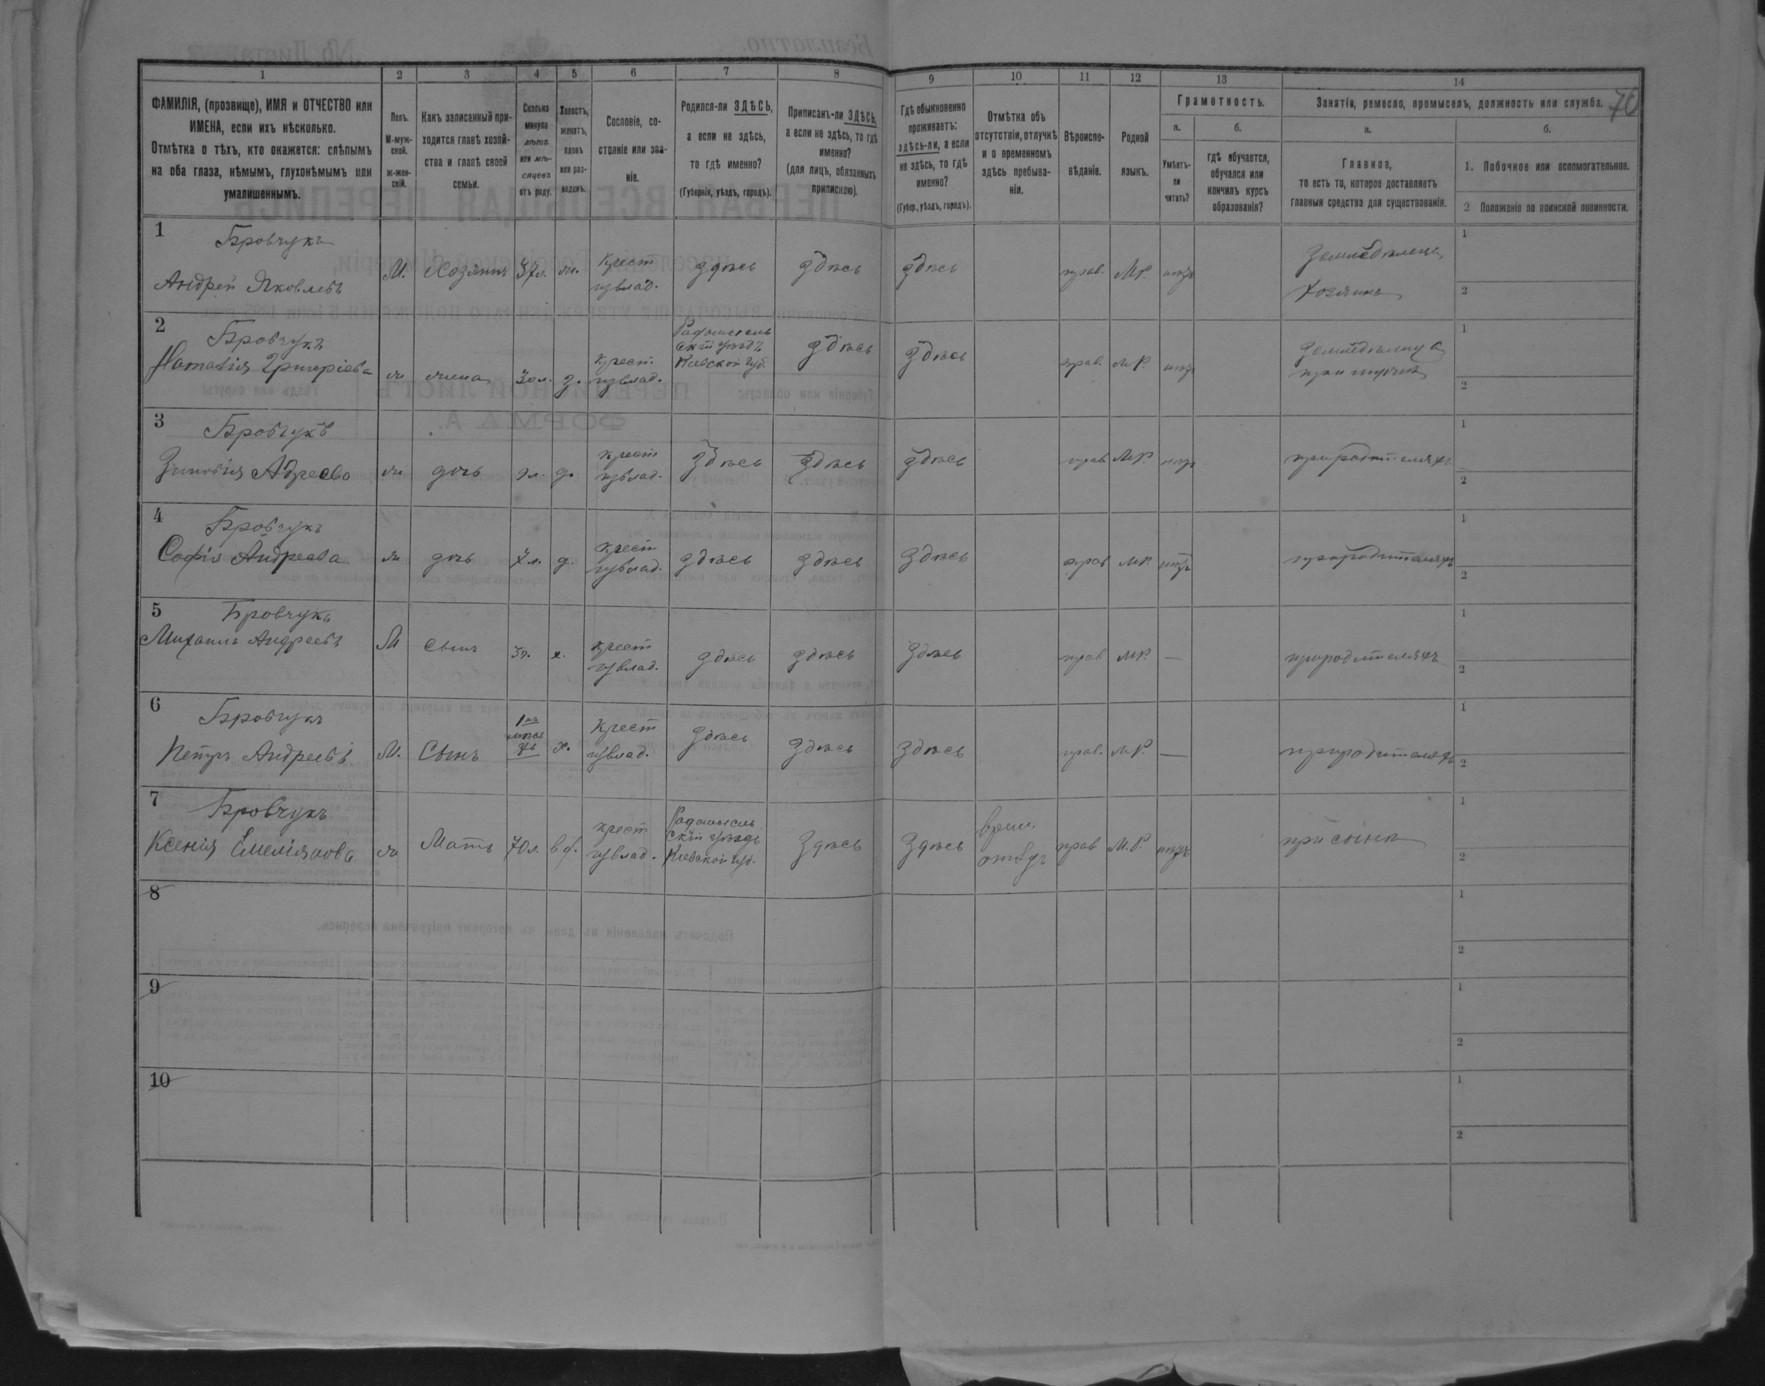 1 2 3 4 5 6 7 8 9 10 11 12 13 14
ФАМИЛІЯ, (прозвище), ИМЯ и ОТЧЕСТВО или
ИМЕНА, если ихъ нѣсколько.
Отмѣтка о тѣхъ, кто окажется: слѣпымъ
на оба глаза, нѣмымъ, глухонѣмымъ или
умалишеннымъ.
Полъ.
М-муж-
ской.
ж-жен-
скій.
Какъ записанный при-
ходится главѣ хозяй-
ства и главѣ своей
семьи.
Сколько
минуло
лѣтъ
или мѣ-
сяцевъ
отъ роду.
Холостъ,
женатъ,
вдовъ
или раз-
веденъ.
Сословіе, со-
стояніе или зва-
ніе.
Родился-ли ЗДѢСЬ,
а если не здѣсь,
то гдѣ именно?
(Губернія, уѣздъ, городъ).
Приписанъ-ли ЗДѢСЬ,
а если не здѣсь, то гдѣ
именно?
(для лицъ, обязанныхъ
припискою).
Гдѣ обыкновенно
проживаетъ:
здѣсь-ли, а если
не здѣсь, то гдѣ
именно?
(Губер., уѣздъ, городъ).
Отмѣтка объ
отсутствіи, отлучкѣ
и о временномъ
здѣсь пребыва-
ніи.
Вѣроиспо-
вѣданіе.
Родной
языкъ.
Грамотность.
а. б.
Умѣетъ-
ли
читать?
гдѣ обучается,
обучался или
кончилъ курсъ
образованія?
Занятія, ремесло, промыселъ, должность или служба. 70
а. б.
Главное,
то есть то, которое доставляетъ
главныя средства для существованія.
1. Побочное или вспомогательное.
2 Положеніе по воинской повинности.
1 Бровчукъ
Андрей Яковлевъ М. Хозяинъ 37л. ж. крест здѣсь здѣсь здѣсь прав. М.Р. Земледѣлецъ 1
хозяинъ 2
2 Бровчукъ Радомысль
скій уѣздъ
Киевской губ.
Наталія Григоріева ж жена 30л. крест здѣсь здѣсь прав. М.Р. 1
2
3 Бровчукъ
дочь 9л. д. крест здѣсь здѣсь здѣсь прав М.Р. при родителяхъ 1
2
4 Бровчукъ
Софія Андреева ж дочь 7л. д. крест здѣсь здѣсь здѣсь прав М.Р. при родителяхъ 1
2
5 Бровчукъ
Михаилъ Андреевъ М сынъ х. крест здѣсь здѣсь здѣсь прав М.Р. — при родителяхъ 1
2
6 Бровчукъ
Петръ Андреевъ М. Сынъ х. крест здѣсь здѣсь здѣсь прав. М.Р. — при родителяхъ 1
2
7 Бровчукъ Радомысль
скій уѣздъ
Киевской губ.
Ксенія Емеліянова ж Мать 70л. вд. крест здѣсь здѣсь прав М.Р. при сынѣ 1
2
8 1
2
9 1
2
10 1
2